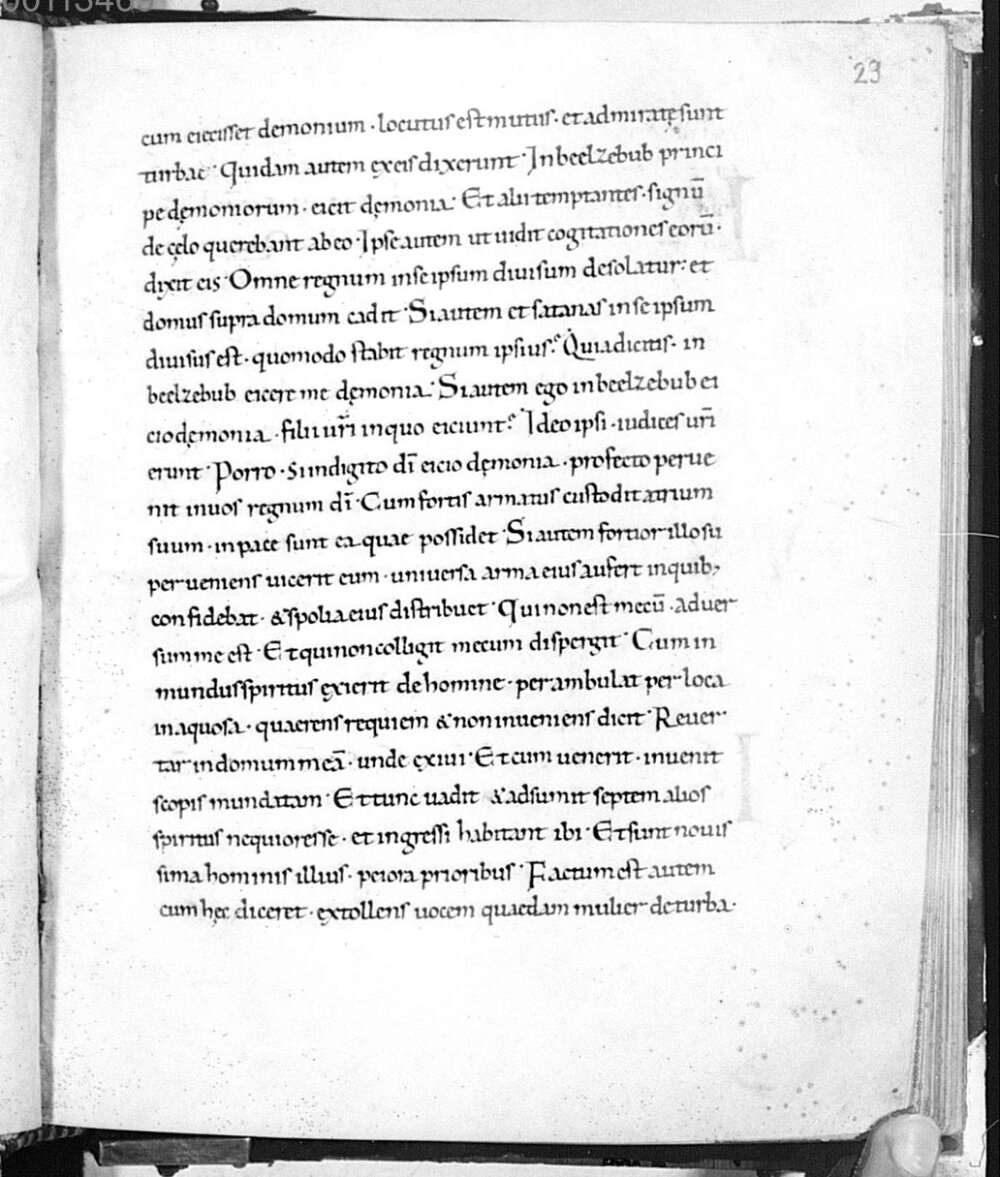 00113460
29
cum eiecisset demonium · locutus est mutus · et admiratę sunt
turbae · Quidam autem ex eis dixerunt · In beelzebub princi
pe dęmoniorum · eicit dęmonia · Et alii temptantes · signū
de cęlo querebant ab eo · Ipse autem ut uidit cogitationes eorū ·
dixit eis · Omne regnum in se ipsum diuisum desolatur · et
domus supra domum cadit · Si autem et satanas in se ipsum
diuisus est · quomodo stabit regnum ipsius? Quia dicitis · in
beelzebub eicere me dęmonia · Si autem ego in beelzebub ei
cio dęmonia · filii ur̄i in quo eiciunt? Ideo ipsi · iudices ur̄i
erunt · Porro · si in digito dī eicio dęmonia · profecto perue
nit in uos regnum dī · Cum fortis armatus custodit atrium
suum · in pace sunt ea quae possidet · Si autem fortior illo su
perueniens uicerit eum · uniuersa arma eius aufert in quib;
confidebat · & spolia eius distribuet · Qui non est mecū · aduer
sum me est · Et qui non colligit mecum dispergit · Cum in
mundus spiritus exierit de homine · perambulat per loca
inaquosa · quaerens requiem & non inueniens dicit · Reuer
tar in domum meā · unde exiui · Et cum uenerit · inuenit
scopis mundatam · Et tunc uadit & adsumit septem alios
spiritus nequiores se · et ingressi habitant ibi · Et sunt nouis
sima hominis illius · peiora prioribus · Factum est autem
cum hęc diceret · extollens uocem quaedam mulier de turba ·